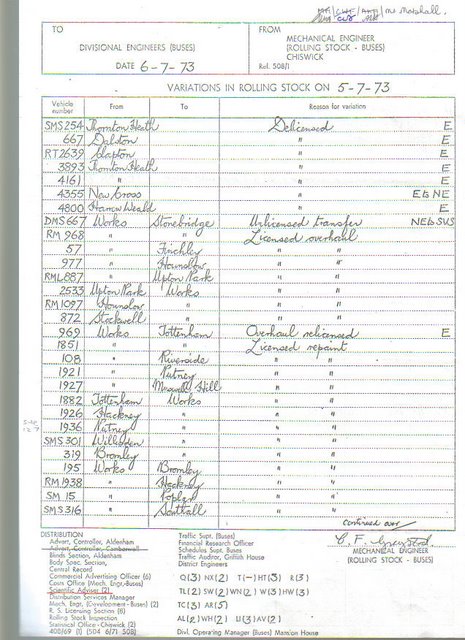 Mr Marshall.
TO
DIVISIONAL ENGINEERS (BUSES)
DATE 6-7-73
FROM
MECHANICAL ENGINEER
(ROLLING STOCK - BUSES)
CHISWICK
Ref. 508/1
VARIATIONS IN ROLLING STOCK ON 5-7-73
Vehicle number From To Reason for variation
SMS 254 Thornton Heath Delicensed E
667 Dalston " E
RT 2639 Clapton " E
3893 Thornton Heath " E
4161 " " E
4355 New Cross " E to NE
4800 Harrow Weald " E
DMS 667 Works Stonebridge Unlicensed transfer NE to SUS
RM 968 " " Licensed overhaul
57 " Finchley " "
977 " Hounslow " "
RML 887 " Upton Park " "
2533 Upton Park Works " "
RM 1097 Hounslow " " "
872 Stockwell " " "
969 Works Tottenham Overhaul relicensed E
1851 " " Licensed repaint
108 " Riverside " "
1921 " Putney " "
1927 " Muswell Hill " "
1882 Tottenham Works " "
1926 Hackney " " "
1936 Putney " " "
SMS 301 Willesden " " "
319 Bromley " " "
195 Works Bromley " "
RM 1938 " Hackney " "
SM 15 " Poplar " "
SMS 316 " Southall " "
continued over
DISTRIBUTION
Advert. Controller, Aldenham
Advert. Controller, Camberwell
Blinds Section, Aldenham
Body Spec. Section,
Central Record
Commercial Advertising Officer (6)
Costs Office (Mech. Engr.-Buses)
Scientific Adviser (2)
Distribution Services Manager
Mech. Engr. (Development - Buses) (2)
R. S. Licensing Section (6)
Rolling Stock Inspection
Statistical Office - Chiswick (2)
400/69 (1) (504 6/71 508)
Traffic Supt. (Buses)
Financial Research Officer
Schedules Supt. Buses
Traffic Auditor, Griffith House
District Engineers
Q(3) NX(2) T(-) HT(3) R(3)
TL(2) SW(2) WN(2) W(3) HW(3)
TC(3) AR(5)
AL(2) WH(2) U(3) AV(2)
Divl. Operating Manager (Buses) Mansion House
MECHANICAL ENGINEER
(ROLLING STOCK - BUSES)